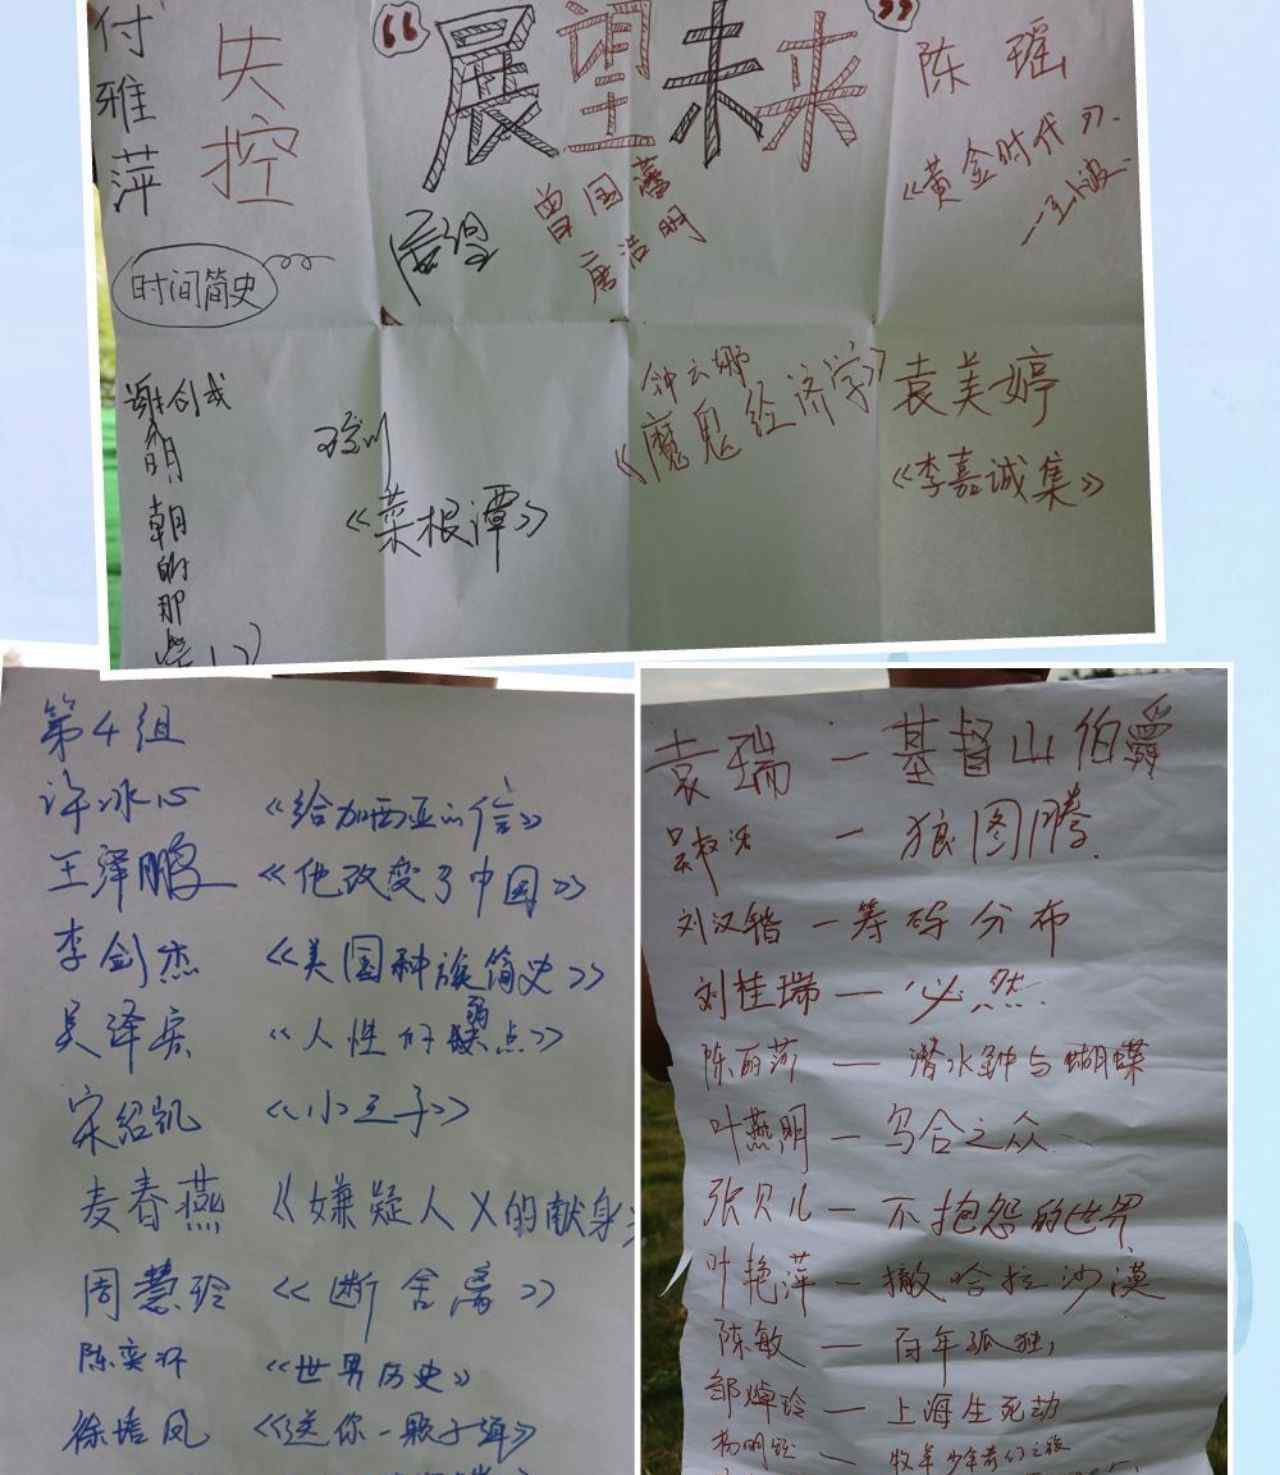 付雅萍
失控
时间简史
“展望未来”
曾国藩
唐浩明
陈瑶
《黄金时代》.
—王小波
明朝的那些
《菜根谭》
钟云娜
《魔鬼经济学》
袁美婷
《李嘉诚集》
第4组
许冰心 《给加西亚的信》
王泽鹏 《他改变了中国》
李剑杰 《美国种族简史》
吴泽宏 《人性的弱点》
宋绍凯 《小王子》
麦春燕 《嫌疑人X的献身》
周慧玲 《断舍离》
陈奕 《世界历史》
徐培凤 《送你一颗子弹》
袁瑞 — 基督山伯爵
— 狼图腾.
刘汉锴 — 筹码分布
刘桂瑞 — 必然.
陈丽莎 — 潜水钟与蝴蝶
叶燕明 — 乌合之众
张贝儿 — 不抱怨的世界
叶艳萍 — 撒哈拉沙漠
陈敏 — 百年孤独,
邹婥玲 — 上海生死劫
杨明 — 牧羊少年奇幻之旅